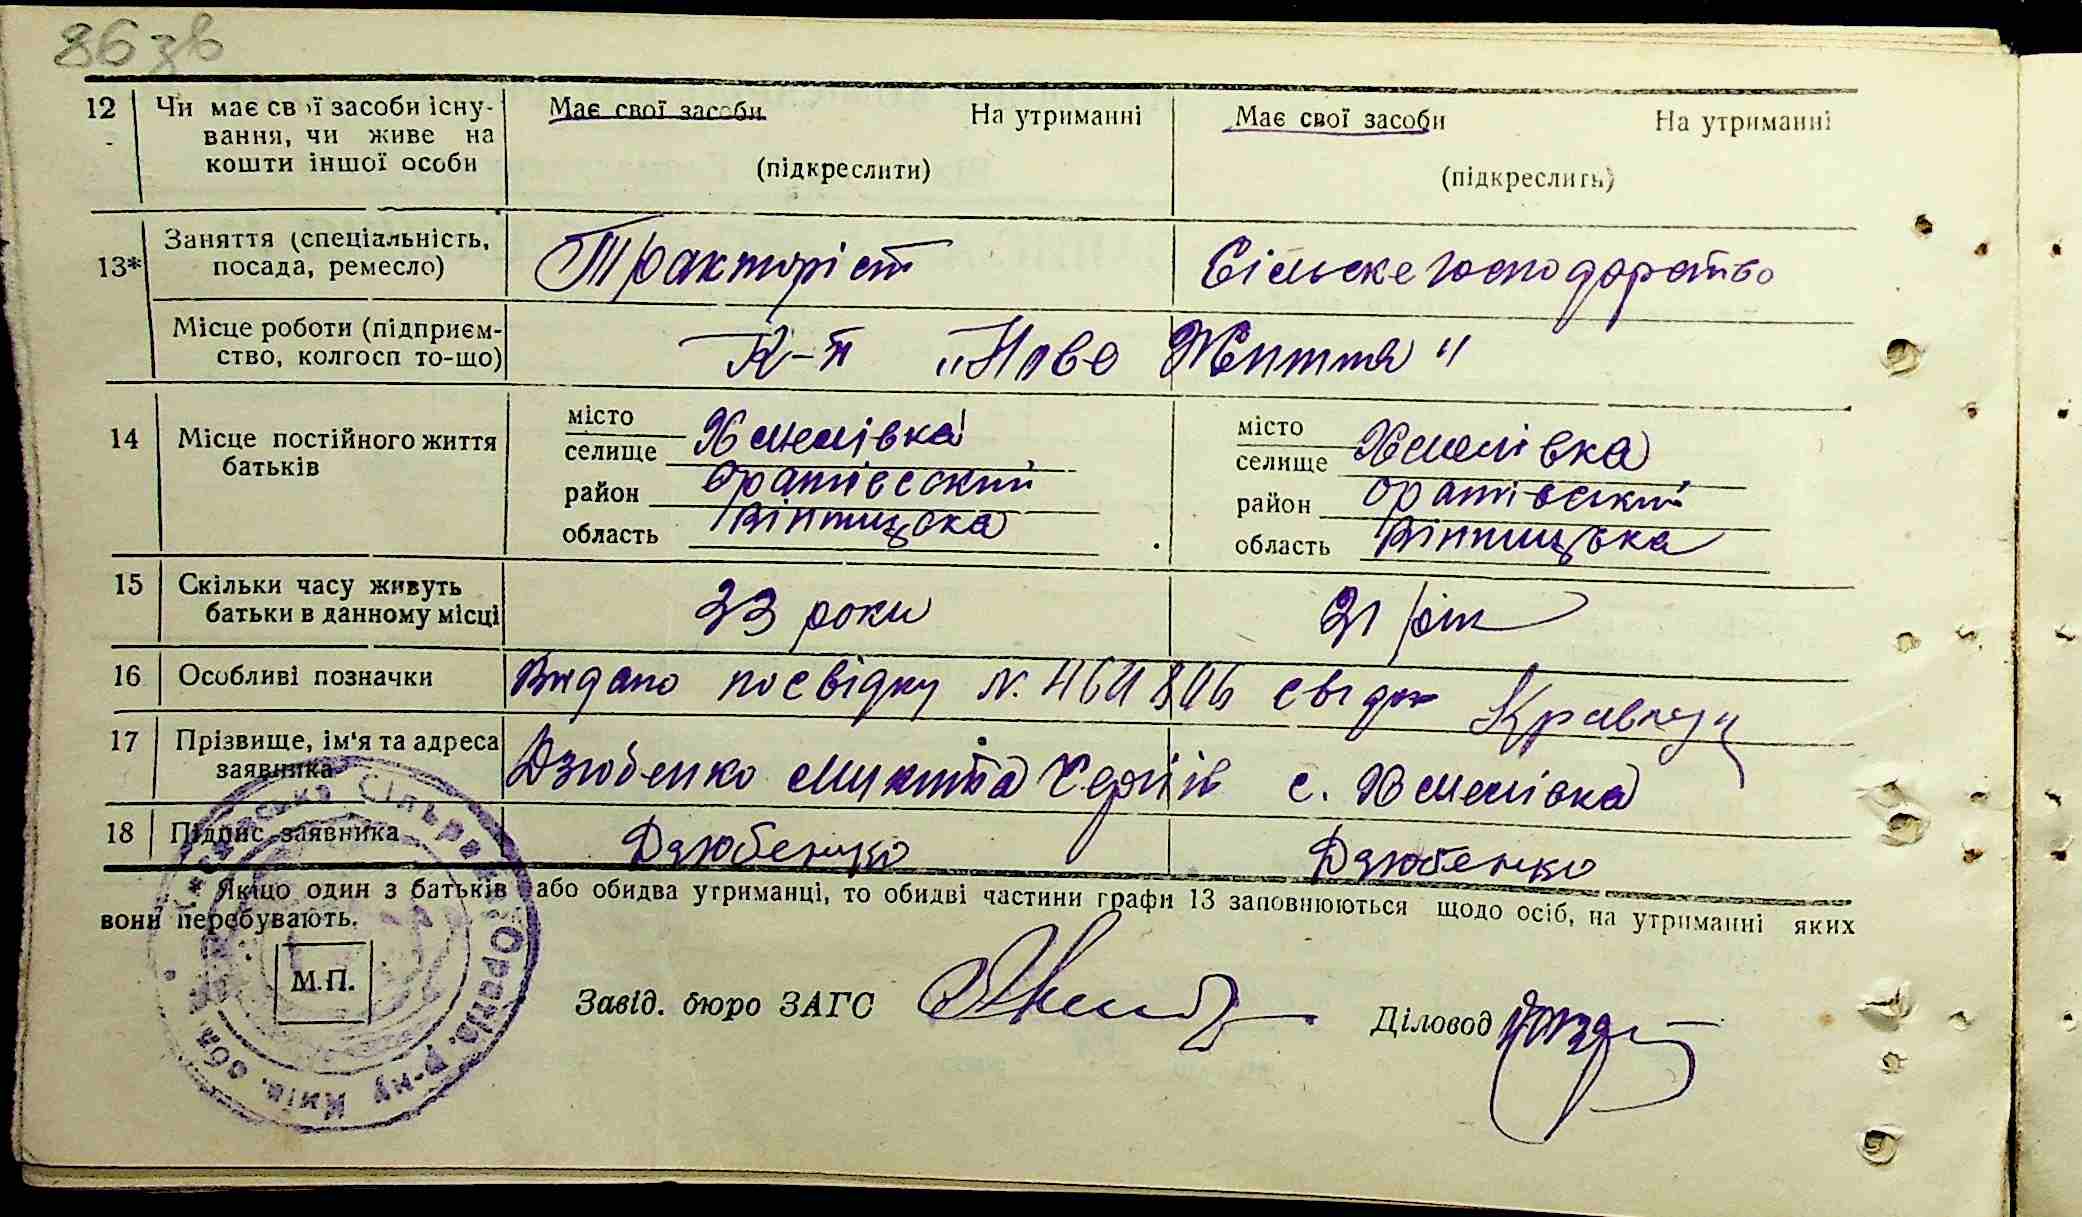 86 зв
12 Чи має св ї засоби існу- Має свої засоби На утриманні Має свої засоби На утриманні
вання, чи живе на
кошти іншої особи (підкреслити) (підкреслить)
13* Заняття (спеціальність,
посада, ремесло) Тракторіст Сільске господарство
Місце роботи (підприєм-
ство, колгосп то-що) К-п "Нове Життя"
14 Місце постійного життя
батьків
місто
селище Хмелівка
район Оратівский
область Вінницька
місто
селище Хмелівка
район Оратівский
область Вінницька
15 Скільки часу живуть
батьки в данному місці 23 роки 21 рік
16 Особливі позначки Видано посвідку №
17 Прізвище, ім'я та адреса
заявника Дзюбенко Микита с. Хмелівка
18 Підпис заявника Дзюбенко Дзюбенко
Якщо один з батьків або обидва утриманці, то обидві частини графи 13 заповнюються щодо осіб, на утриманні яких
вони перебувають.
М.П.
Завід. бюро ЗАГС Діловод
Сільрада Оратів. Р-ну Київ. обл.